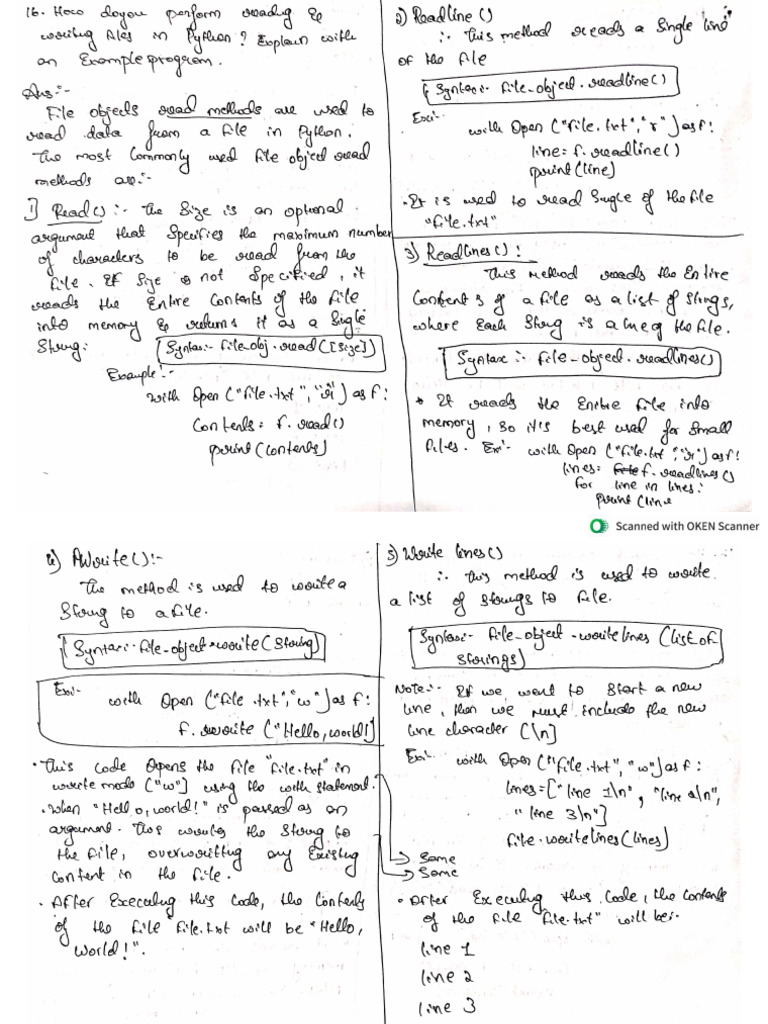 16. How do you perform reading &
writing files in Python? Explain with
an Example program.
Ans:-
File objects read methods are used to
read data from a file in Python.
The most Commonly used file object read
methods are:-
1] Read():- The Size is an optional
argument that Specifies the maximum number
of characters to be read from the
file. If Size is not Specified, it
reads the Entire Contents of the file
into memory & returns it as a Single
String:
Syntax:- file_obj.read([Size])
Example:-
with Open ("file.txt", "r") as f:
Contents = f.read()
print(Contents)
2) Readline()
∴ This method reads a Single line
of the file
Syntax:- file_object.readline()
Ex:-
with Open ("file.txt", "r") as f:
line = f.readline()
print(line)
• It is used to read Single of the file
"file.txt"
3) Readlines():
This Method reads the Entire
Contents of a file as a list of Strings,
where Each String is a line of the file.
Syntax:- file_object.readlines()
• It reads the Entire File into
memory, so it's best used for Small
files. Ex:- with Open ("file.txt", "r") as f:
lines = f.readlines()
for line in lines:
print (line
Scanned with OKEN Scanner
4) Write():-
The method is used to write a
String to a file.
Syntax:- file_object.write(String)
Ex:-
with Open ("file.txt", "w") as f:
f.write ("Hello, world!]
• This Code Opens the file "file.txt" in
write mode ("w") using the with statement.
• When "Hello, world!" is passed as an
argument. This writes the String to
the file, overwriting any Existing
Content in the file.
• After Executing this Code, the Contents
of the file file.txt will be "Hello,
World!".
5) Write lines()
∴ This method is used to write
a list of Strings to file.
Syntax:- file_object.writelines (list_of
Strings)
Note:- If we want to Start a new
line, then we must include the new
line character (\n]
Ex:- with Open ("file.txt", "w") as f:
lines = ["line 1\n", "line 2\n",
"line 3\n"]
file.writelines(lines)
→ Same
→ Same
• After Executing this Code, the Contents
of the file "file.txt" will be:-
line 1
line 2
line 3